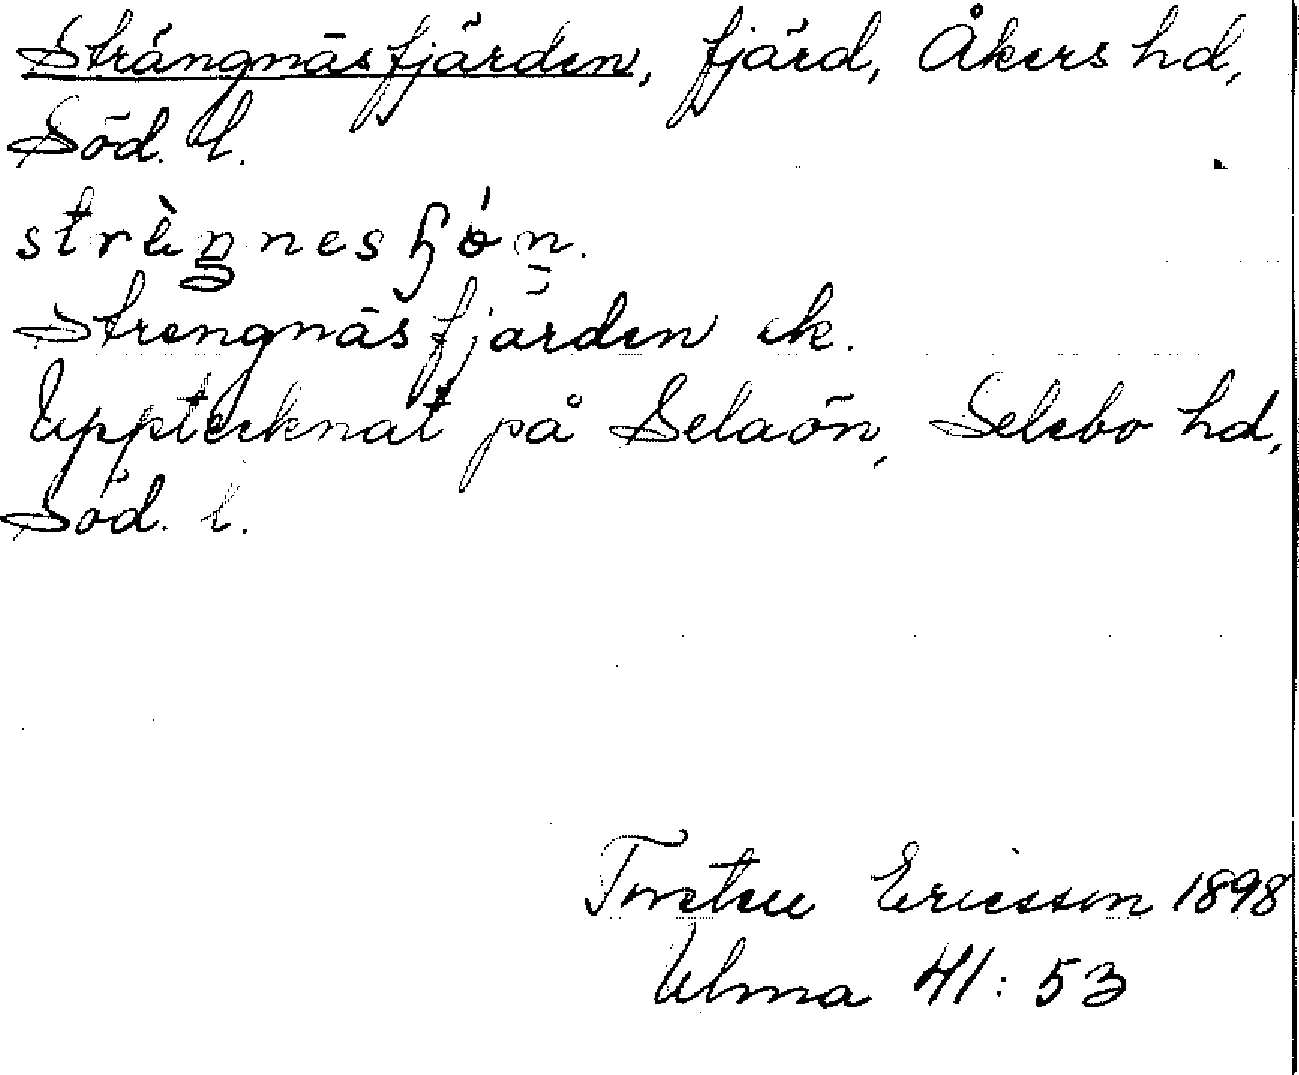 Strängnäsfjärden, fjärd, Åkers hd,
Söd. l.
Strengnäsfjärden ek.
Upptecknat på Selaön, Selebo hd,
Söd. l.
Torsten Ericsson 1898
Ulma 41:53